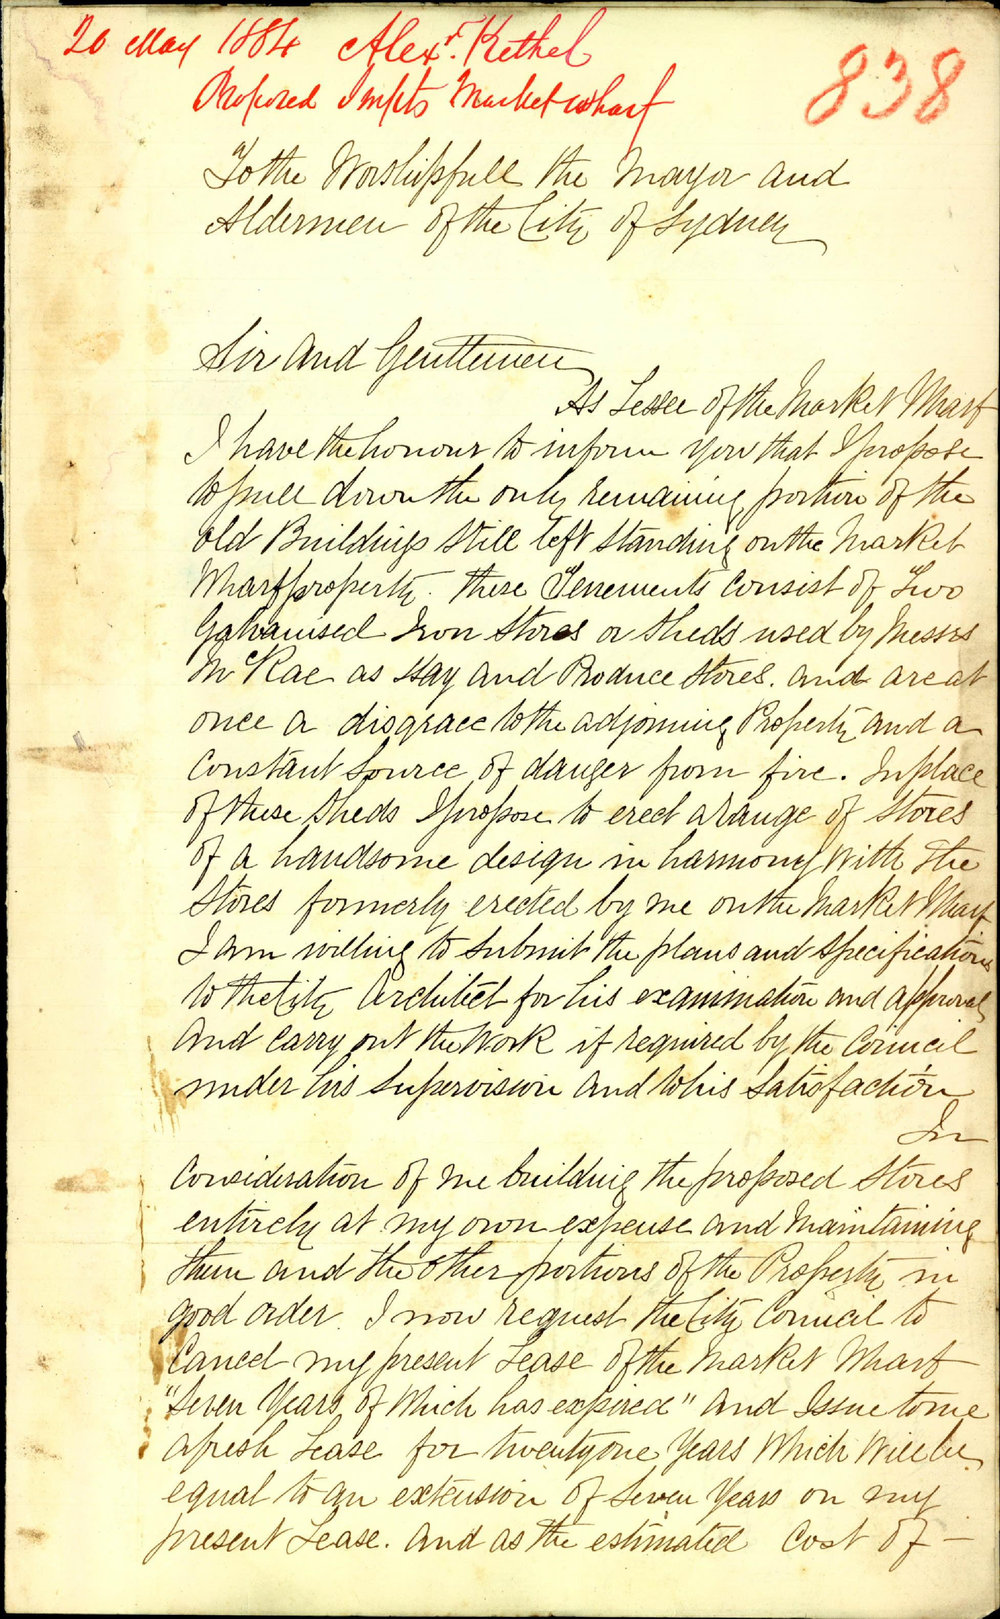 20 May 1884 Alexr. Kethel
838
Proposed Impts Market wharf
To the Worshipfull the Mayor and
Aldermen of the City of Sydney
Sir and Gentlemen
As Lessee of the Market Wharf
I have the honour to inform you that I propose
to pull down the only remaining portion of the
old Buildings still left standing on the Market
Wharf property. these Tenements consist of Two
Galvanised Iron Stores or Sheds used by Messrs
McRae as Hay and Produce Stores. and are at
once a disgrace to the adjoining Property and a
Constant Source of danger from fire. In place
of these Sheds I propose to erect a range of Stores
of a handsome design in harmony with the
Stores formerly erected by me on the Market Wharf
I am willing to submit the plans and specifications
to the City Architect for his examination and approval
and carry out the Work if required by the Council
under his supervision and to his Satisfaction
In
Consideration of me building the proposed Stores
entirely at my own expense and Maintaining
them and the other portions of the Property in
good order. I now request the City Council to
Cancel my present Lease of the Market Wharf
"Seven Years of Which has expired" and Issue to me
a fresh Lease for twentyone Years Which Will be
equal to an extension of Seven Years on my
present Lease. and as the estimated Cost of —